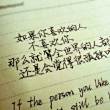 如果你喜欢的人
不喜欢你
那么就算全世界的人都
还是会觉得很孤独
If the person you like
still be